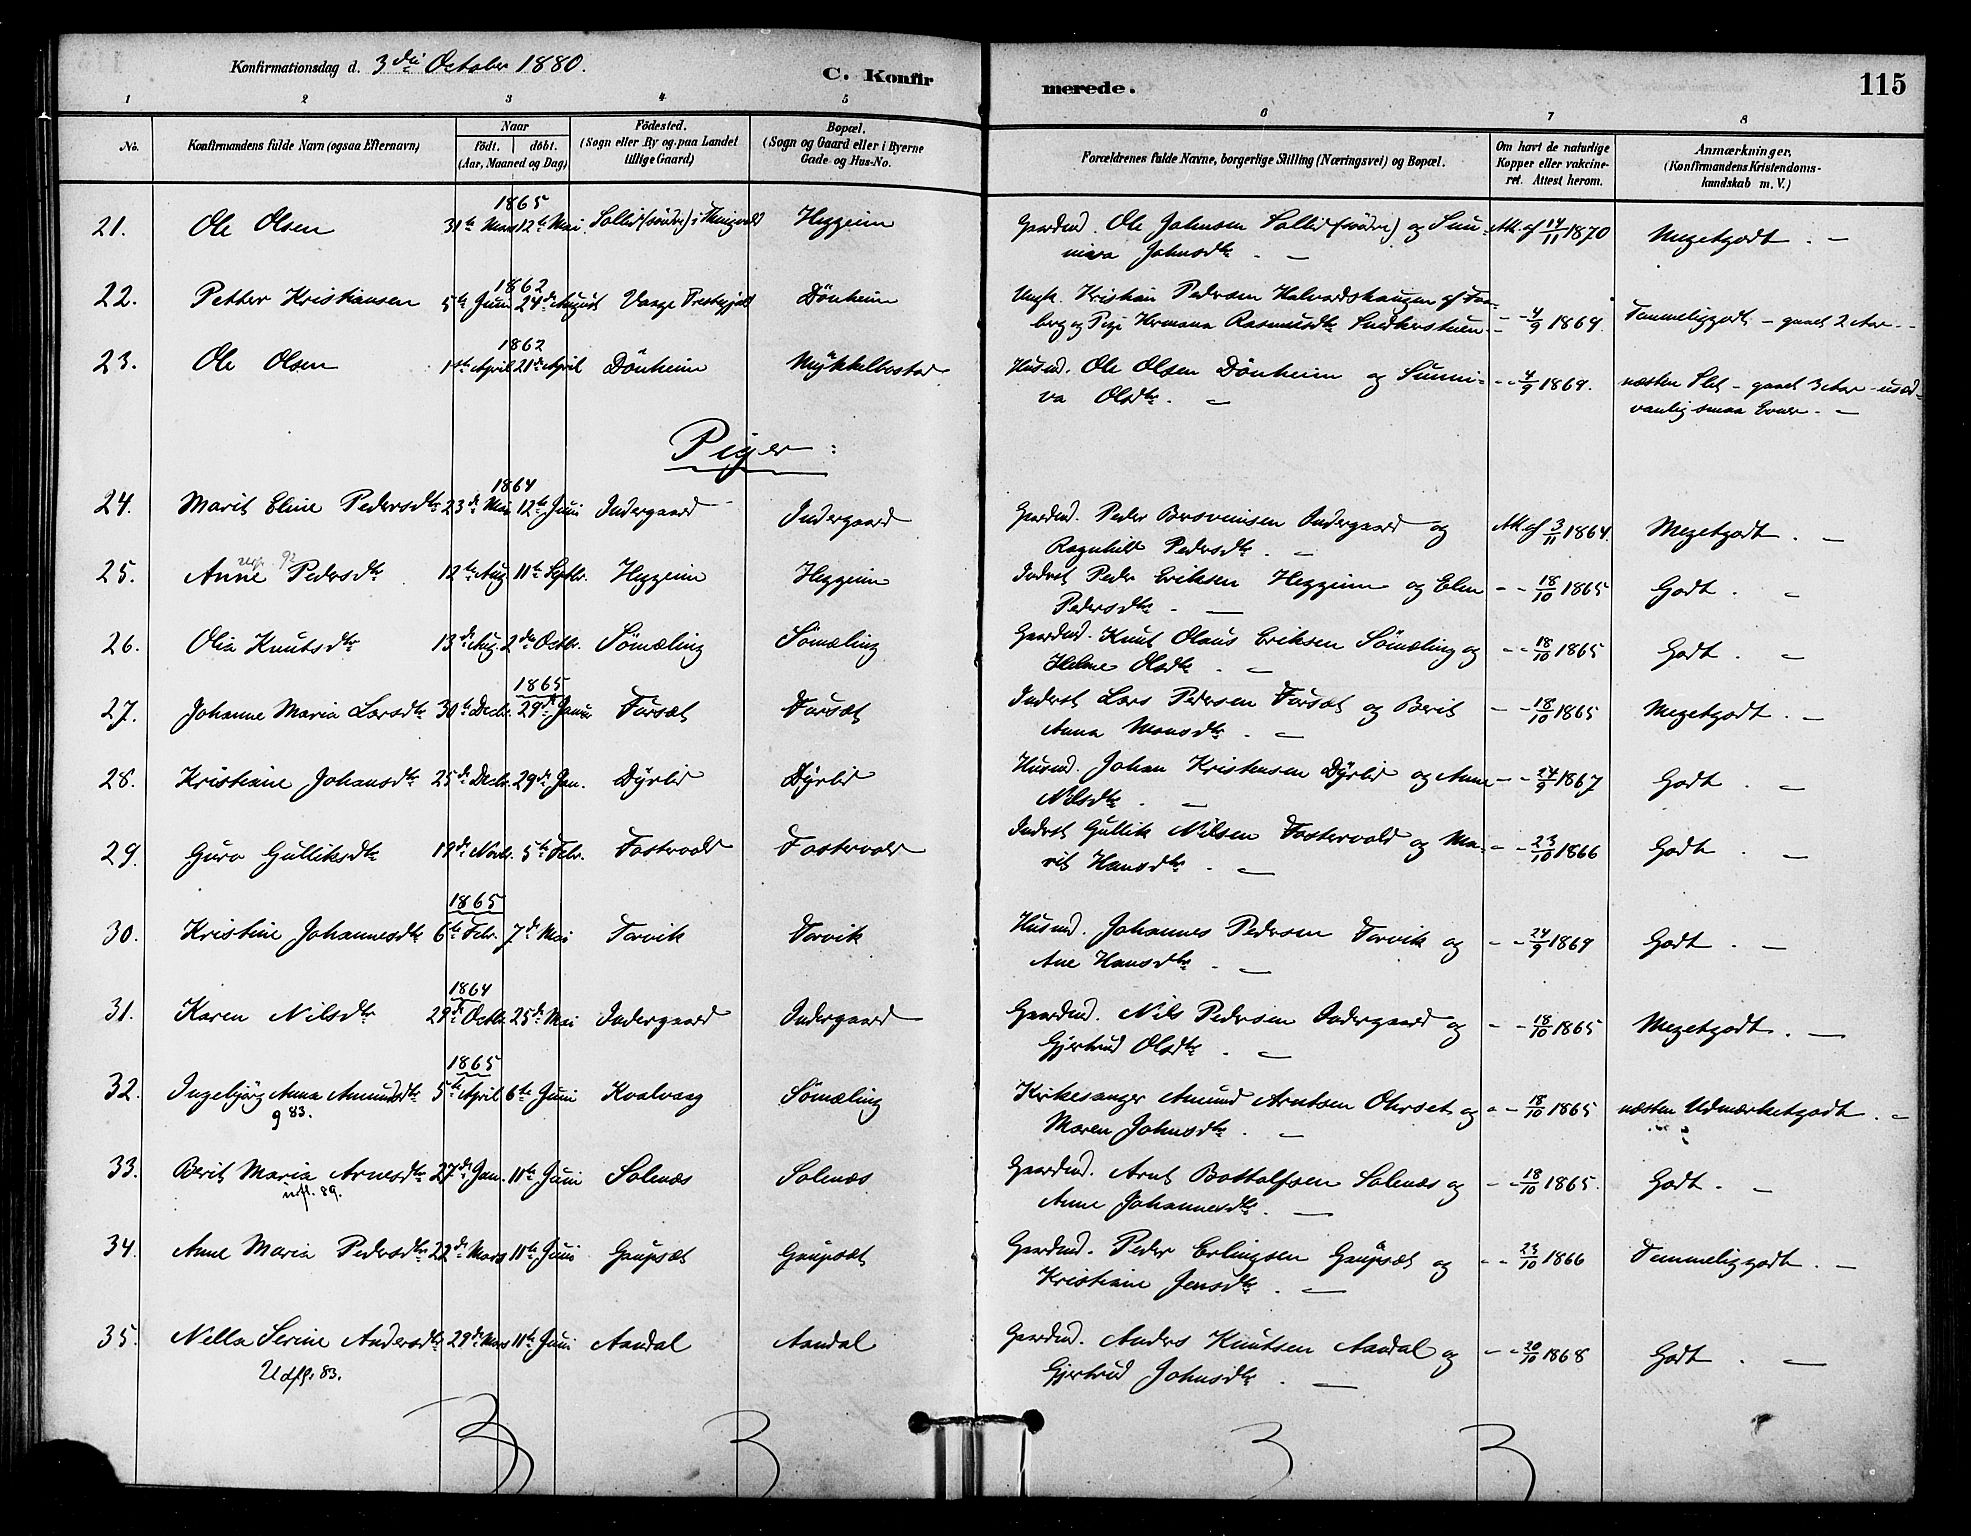 Konfirmationsdag d. 3die October 1880.
C. Konfirmerede.
115
1 2 3 4 5 6 7 8
No.
Konfirmandens fulde Navn (ogsaa Efternavn)
Naar
födt. döbt.
(Aar, Maaned og Dag)
Födested.
(Sogn eller By og paa Landet
tillige Gaard)
Bopæl.
(Sogn og Gaard eller i Byerne
Gade og Hus-No.
Forældrenes fulde Navne, borgerlige Stilling (Næringsvei) og Bopæl.
Om havt de naturlige
Kopper eller vakcine-
ret. Attest herom.
Anmærkninger,
(Konfirmandens Kristendoms-
kundskab m. V.)
1865
21. Ole Olsen 31te Mars 12te Mai Heggeim Gaardmd. Ole Johnsen Sollid (söndre) og Sun-
niva Johnsdtr. Att. af 14/11 1870 Megetgodt. -
1862
22. Petter Kristiansen 5te Juni 24de August Vaage Prestegjeld Dönheim Ungk. Kristian Pedersen Halvardshaugen af Faa-
berg og Pige Hermana Rasmusdtr. - - 4/9 1864. Temmeliggodt - gaaet 2 Aar -
1862
23. Ole Olsen 1ste April 21de April Dönheim Mykkelbostad Husmd. Ole Olsen Dönheim og Sunni-
va Olsdtr. - - - 4/9 1864. næsten Slet - gaaet 3 Aar - usæd-
vanlig smaa Evner. -
Piger:
1864
24. Marit Eline Pedersdtr 23de Mai 12te Juni Indergaard Indergaard Gaardmd. Peder Indergaard og
Ragnhild Pedersdtr. - Att. af 3/11 1864. Megetgodt. -
25. Anne Pedersdtr 12te Aug. 11te Septbr. Heggeim Heggeim Inderst Peder Eriksen Heggeim og Elen
Pedersdtr. - - - 18/10 1865 Godt. -
26. Olia Knutsdtr 13de Aug. 2den Octbr. Sömæling Sömæling Gaardmd. Knut Olaus Eriksen Sömæling og
Olsdtr. - - - 18/10 1865 Godt. -
1865
27. Johanne Maria Larsdtr 30te Decbr. 29de Januar Farsæt Farsæt Inderst Lars Pedersen Farsæt og Berit
Anna Monsdtr. - - - 18/10 1865 Megetgodt. -
28. Kristiane Johansdtr 25de Decbr. 29de Jan. Dyrlid Dyrlid Husmd. Johan Kristensen Dyrlid og Anne
Nilsdtr. - - - 24/9 1867 Godt. -
29. Guro Gulliksdtr 19de Novbr. 5te Febr. Fostervold Fostervold Inderst Gullik Nilsen Fostervold og Ma-
rit Hansdtr. - - - 23/10 1866 Godt. -
1865
30. Kristine Johannesdtr 6te Febr. 7de Mai Torvik Torvik Husmd. Johannes Pedersen Torvik og
Ane Hansdtr. - - - 24/9 1869 Godt. -
1864
31. Karen Nilsdtr 29de Octbr. 25de Mai Indergaard Indergaard Gaardmd. Nils Pedersen Indergaard og
Gjertrud Olsdtr. - - - 18/10 1865 Megetgodt. -
1865
32. Ingebjörg Anna Amundsdtr 5te April 6te Juni Kvalvaag Sömæling Kirkesanger Amund Arntsen Ohrset og
g 83. Maren Johnsdtr. - - - 18/10 1865 næsten Udmærketgodt. -
33. Berit Maria Arnesdtr 27de Jan. 11te Juni Solenæs Solenæs Gaardmd. Arnt Bottolfsen Solenæs og
utfl. 89. Anne Johannesdtr. - - - 18/10 1865. Godt. -
34. Anne Maria Pedersdtr 22de Mars 11te Juni Gaupsæt Gaupsæt Gaardmd. Peder Erlingsen Gaupsæt og
Kristiane Jensdtr. - - - 23/10 1866 Temmeliggodt. -
35. Nella Serine Andersdtr 29de Mars 11te Juni Aandal Aandal Gaardmd. Anders Knutsen Aandal og
Udfl. 83. Gjertrud Johnsdtr. - - - 20/10 1868 Godt. -